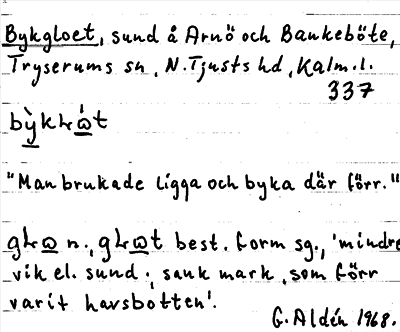 Bykgloet, sund å Arnö och Baukeböte,
Tryserums sn, N. Tjusts hd, Kalm. l.
337
"Man brukade ligga och byka där förr."
n., best. form sg., 'mindre
vik el. sund; sank mark, som förr
varit havsbotten'.
G. Aldén 1968.